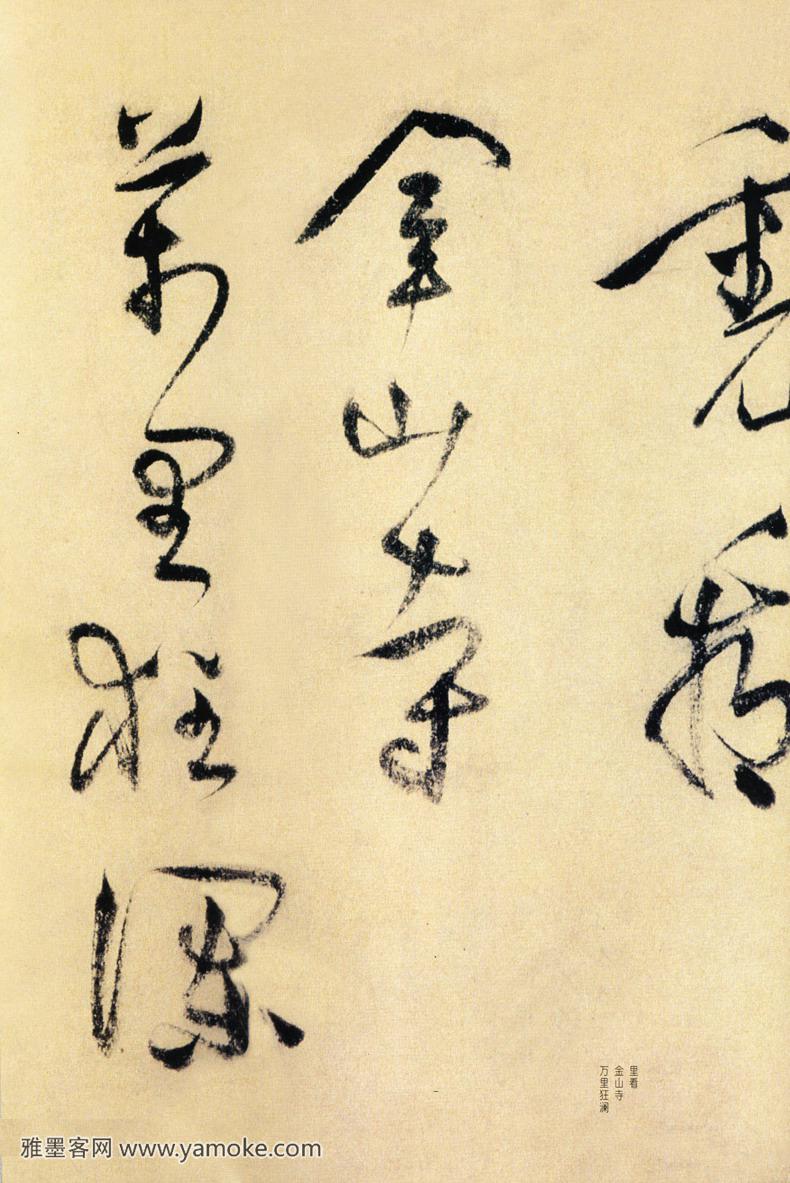 裏看
金山寺
萬里狂瀾
里看
金山寺
万里狂澜
雅墨客网 www.yamoke.com